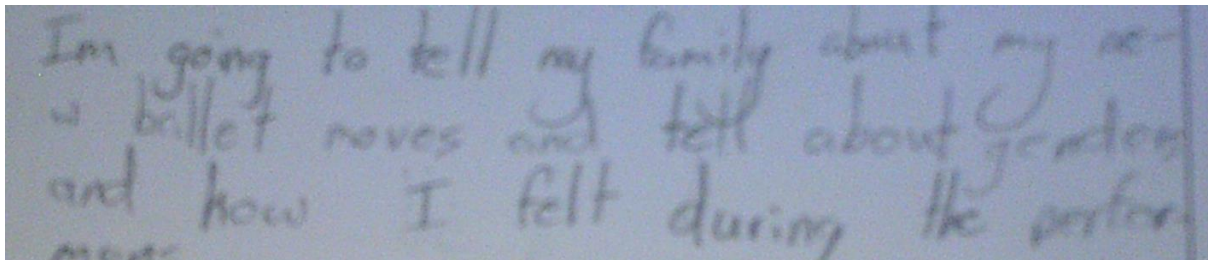 Im going to tell my family about my ne-
w ballet moves and tell about genders
and how I felt during the perfor-